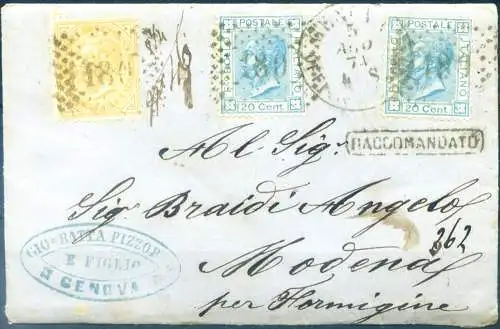 POSTALE
ITALIANO
20 Cent.
POSTALE
ITALIANO
20 Cent.
5
AGO
71
RACCOMANDATO
Al Sig:
Sig. Braidi Angelo
362
Modena
per Formigine
GIO. BATTA PIZZOR
E FIGLIO
GENOVA